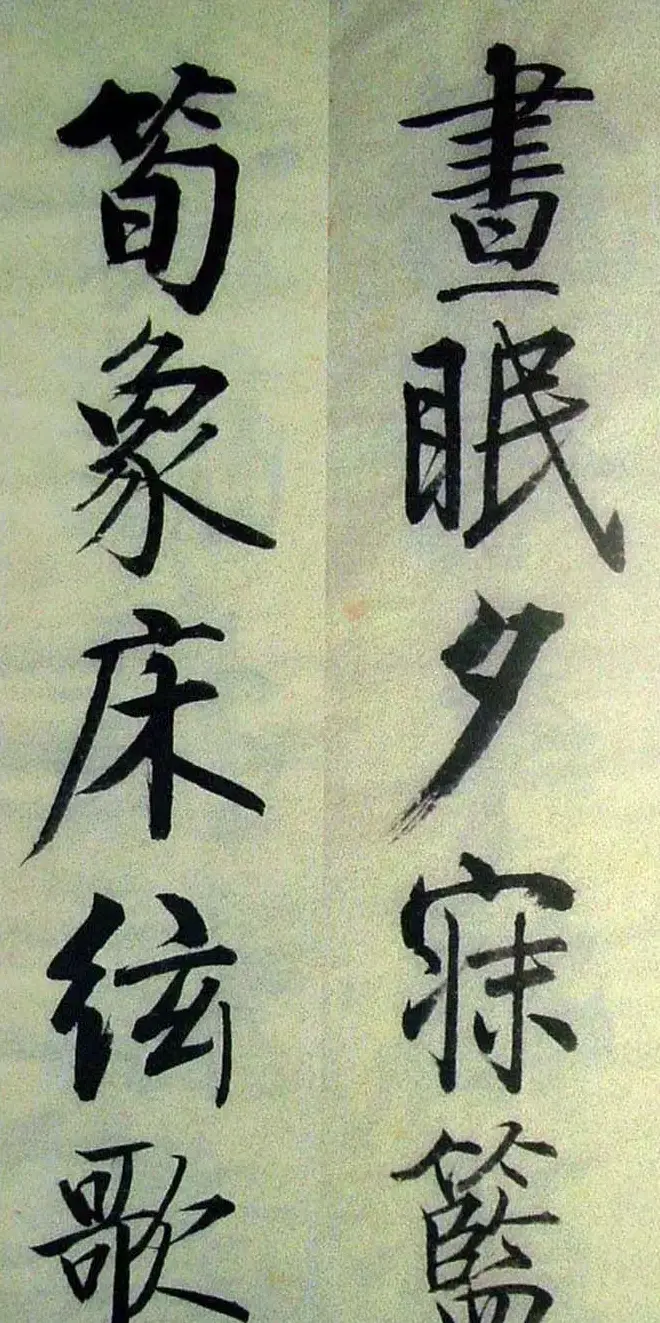 晝眠夕寐籃
筍象床絃歌